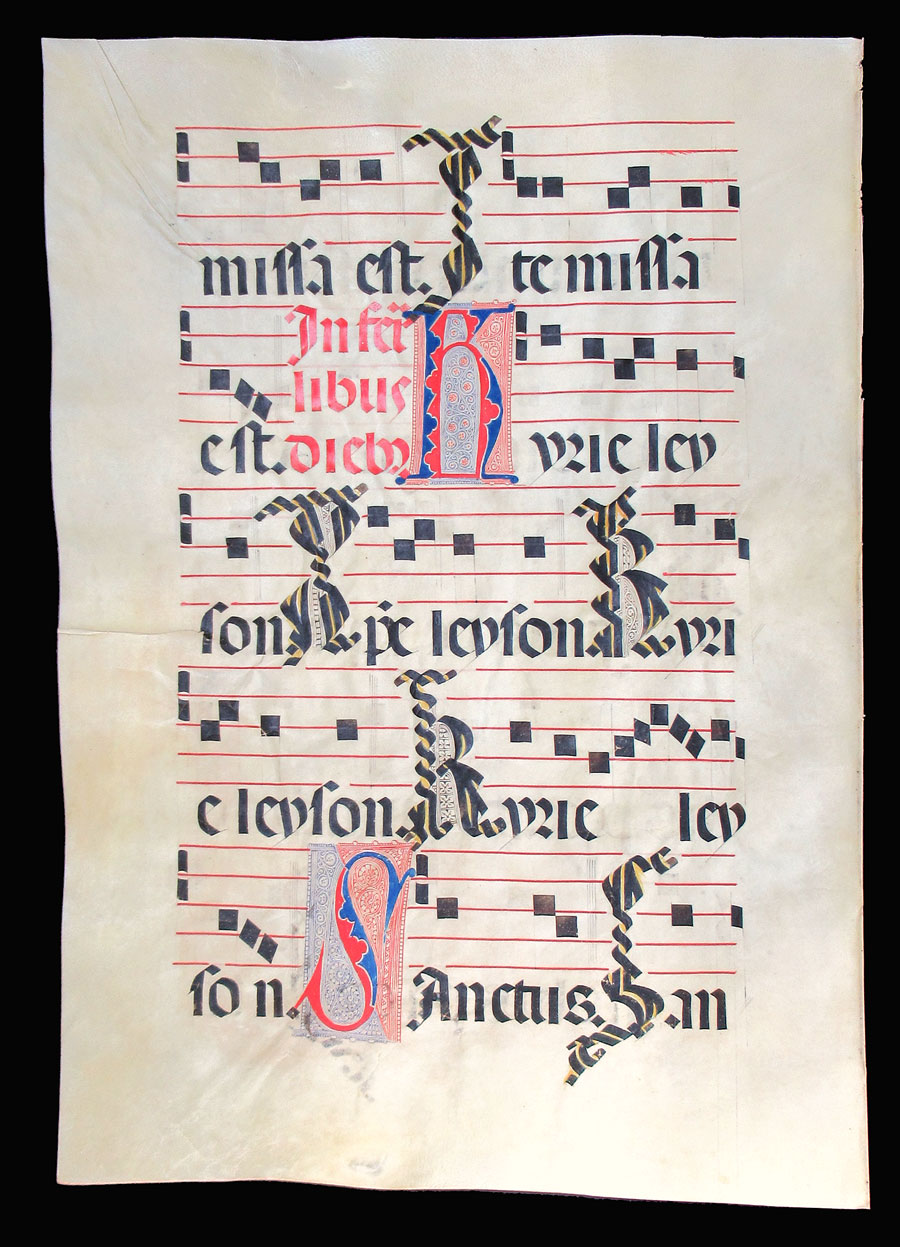 missa est. Ite missa
est. In feri
libus
diebꝫ Kyrie ley
son. Xp̄e leyson. Kyri
e leyson. Kyrie ley
son. SAnctus. San